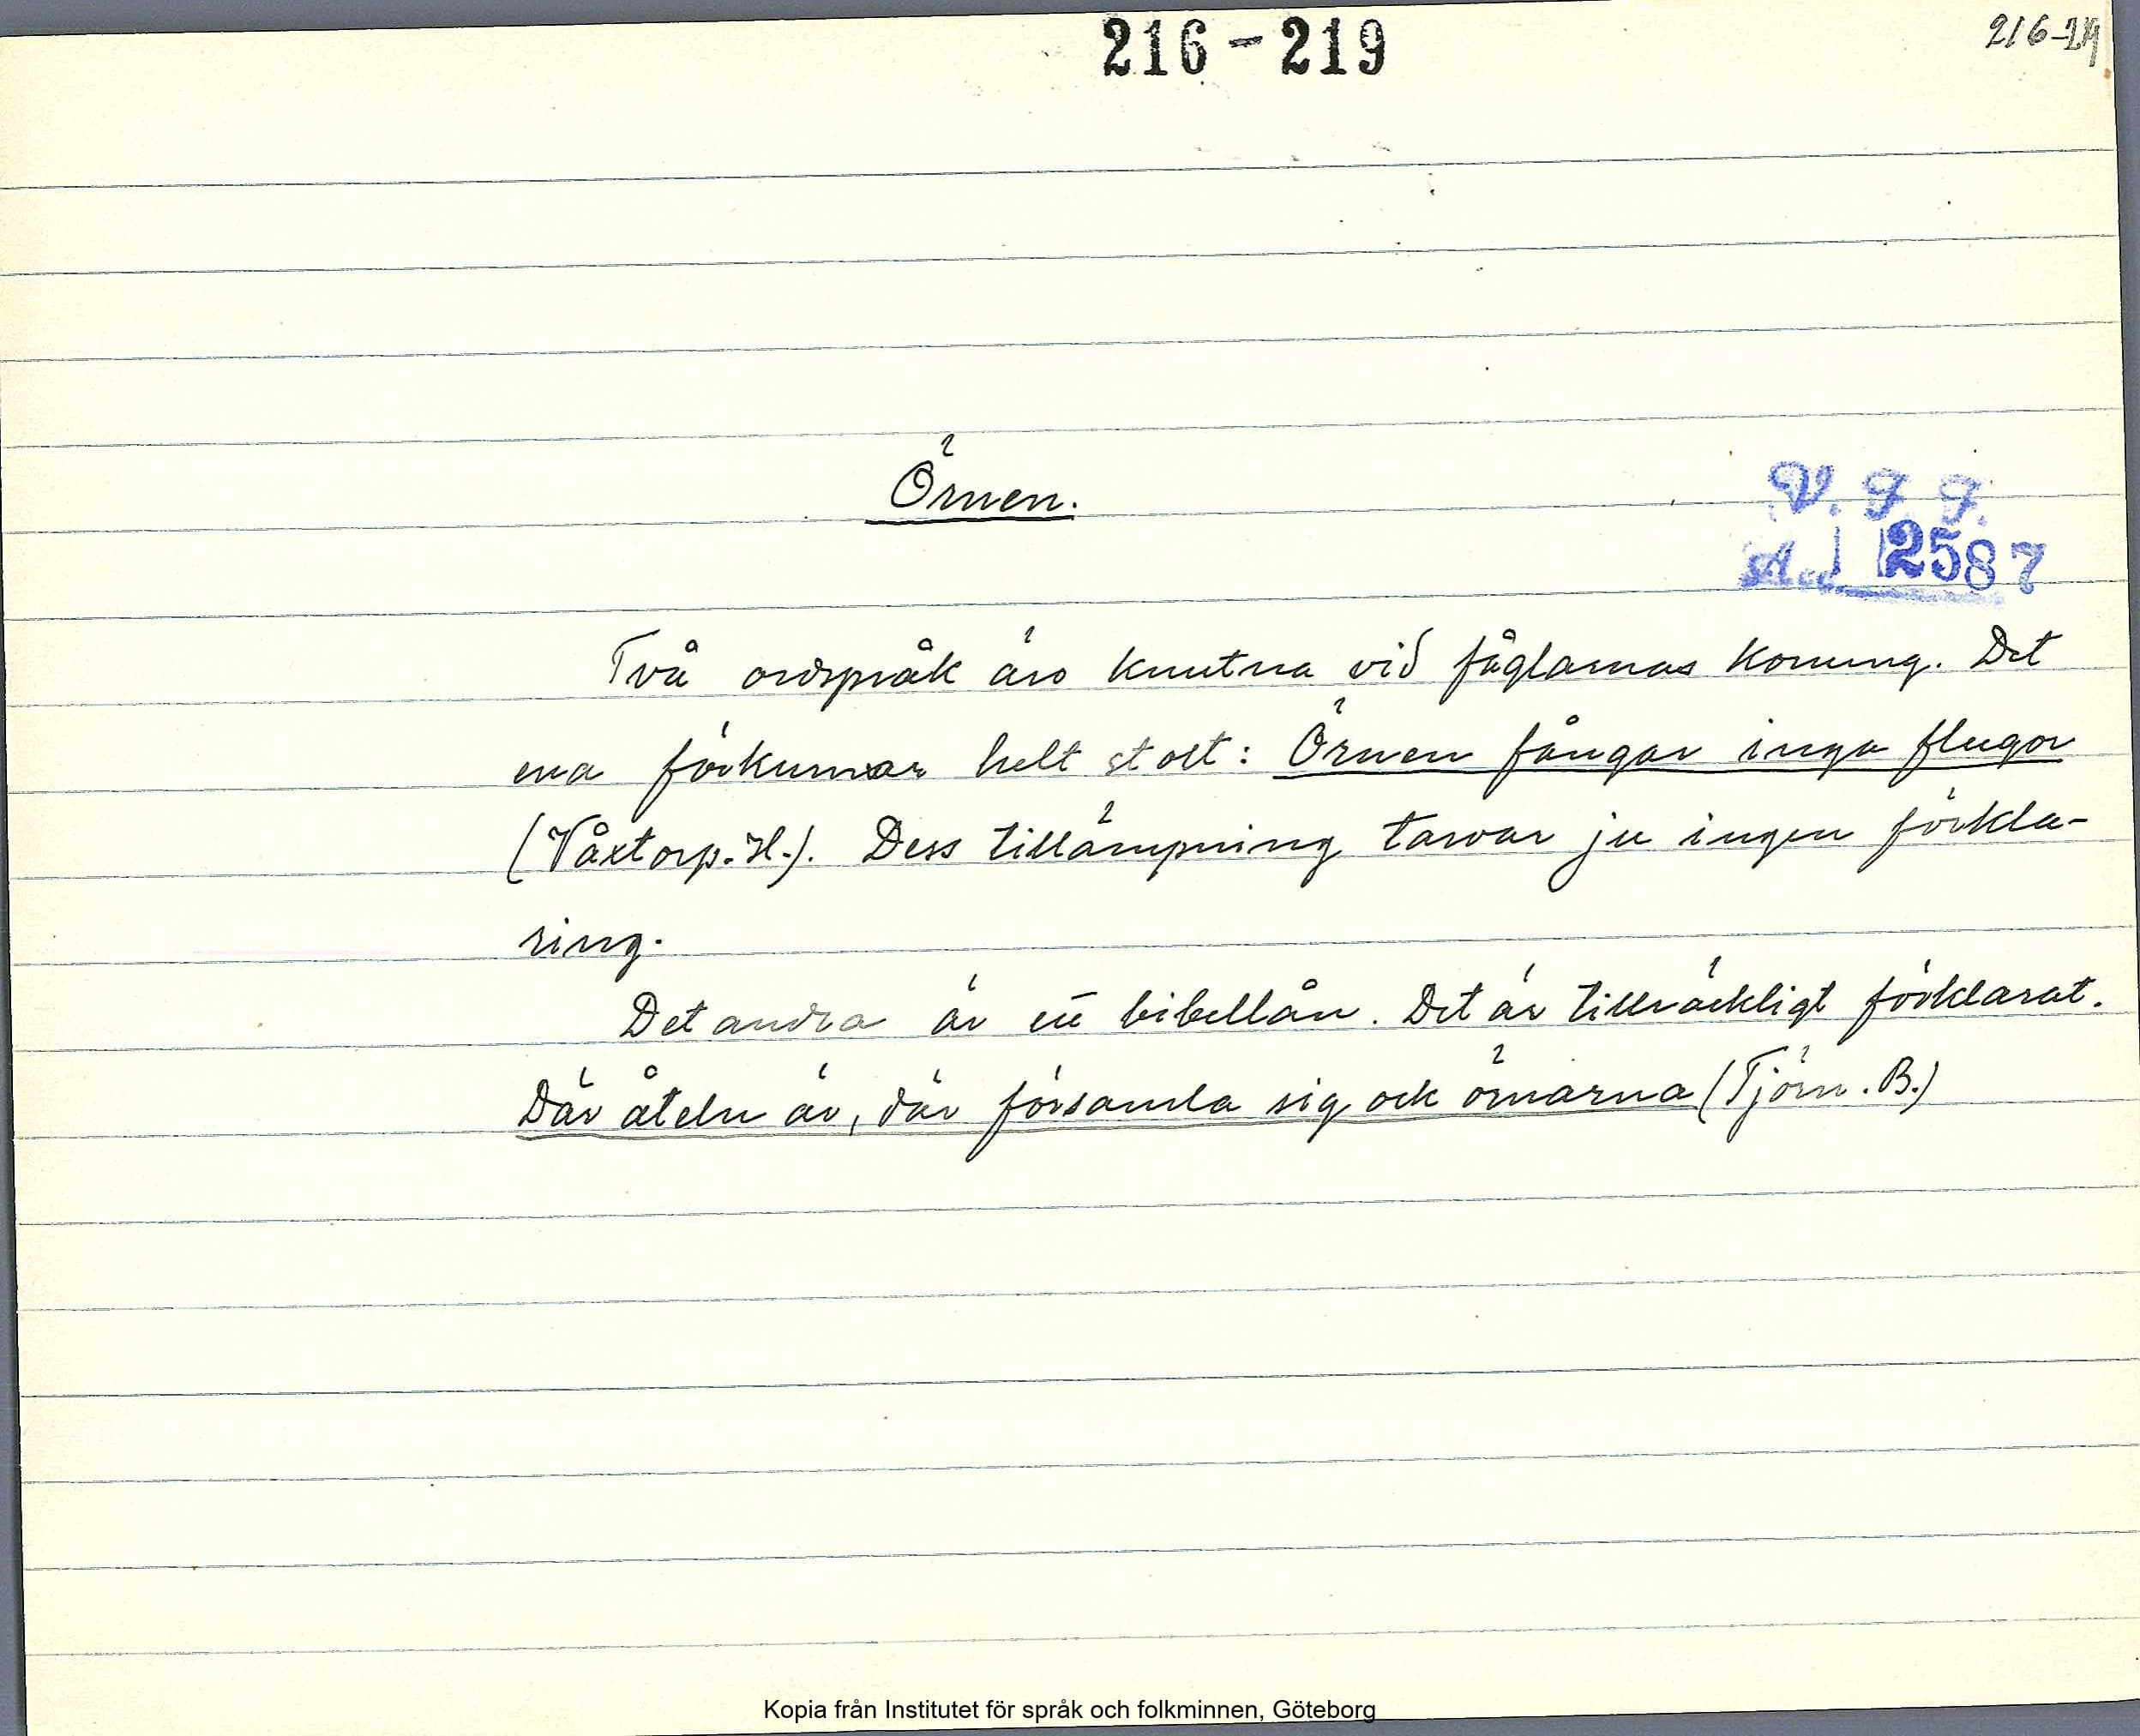 216-219
216-219
Örnen.
V. F. F.
Acc 2587
Två ordspråk äro knutna vid fåglarnas konung. Det
ena förkunnar helt stolt: Örnen fångar inga flugor
(Våxtorp. Hl.). Dess tillämpning tarvar ju ingen förkla-
ring.
Det andra är ett bibellån. Det är tillräckligt förklarat.
Där åteln är, där församla sig ock örnarna (Tjörn. B.)
Kopia från Institutet för språk och folkminnen, Göteborg